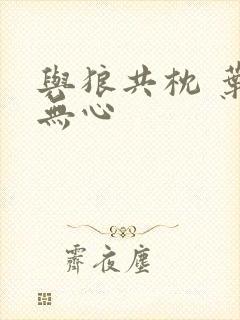 與狼共枕 葉
無心
霽夜塵